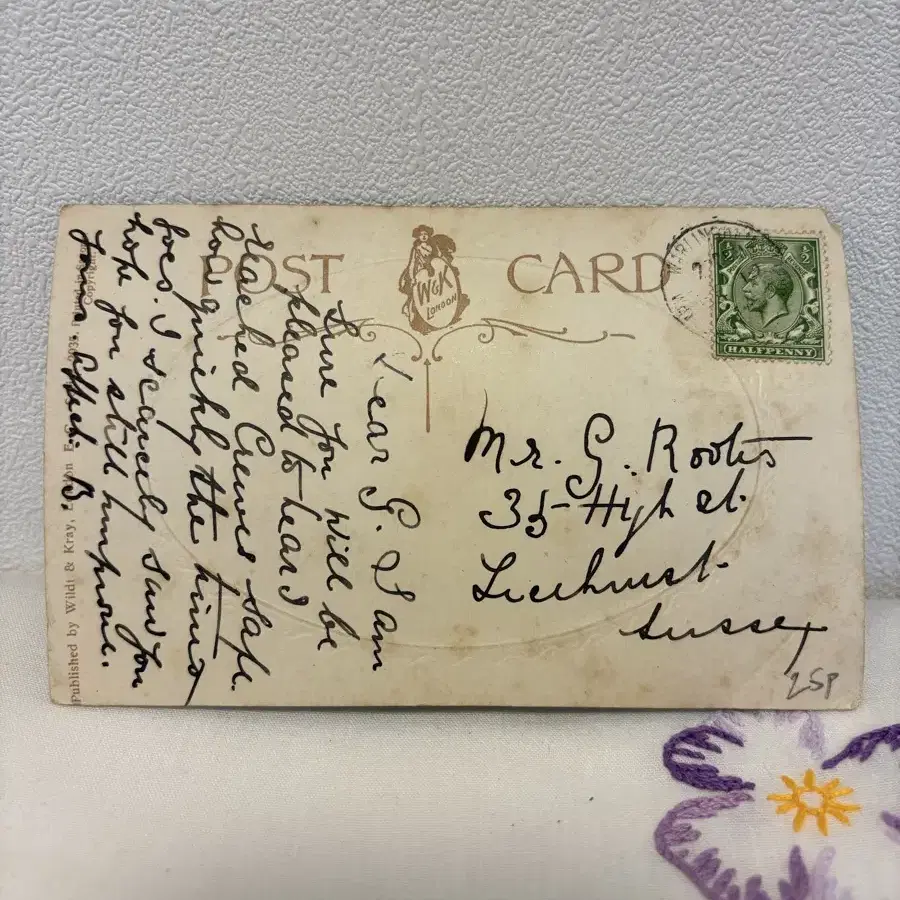 POST CARD
W&K
LONDON
HALFPENNY
Dear G. I am
Sure you will be
pleased to hear I
reached Crewe safe.
how quickly the time
goes. I scarcely saw you
hope you still improve.
Yours Affect. B.
Mr. G. Roots
35 High St.
Ticehurst.
Sussex
25P
Published by Wildt & Kray, London E.C.
Copyright